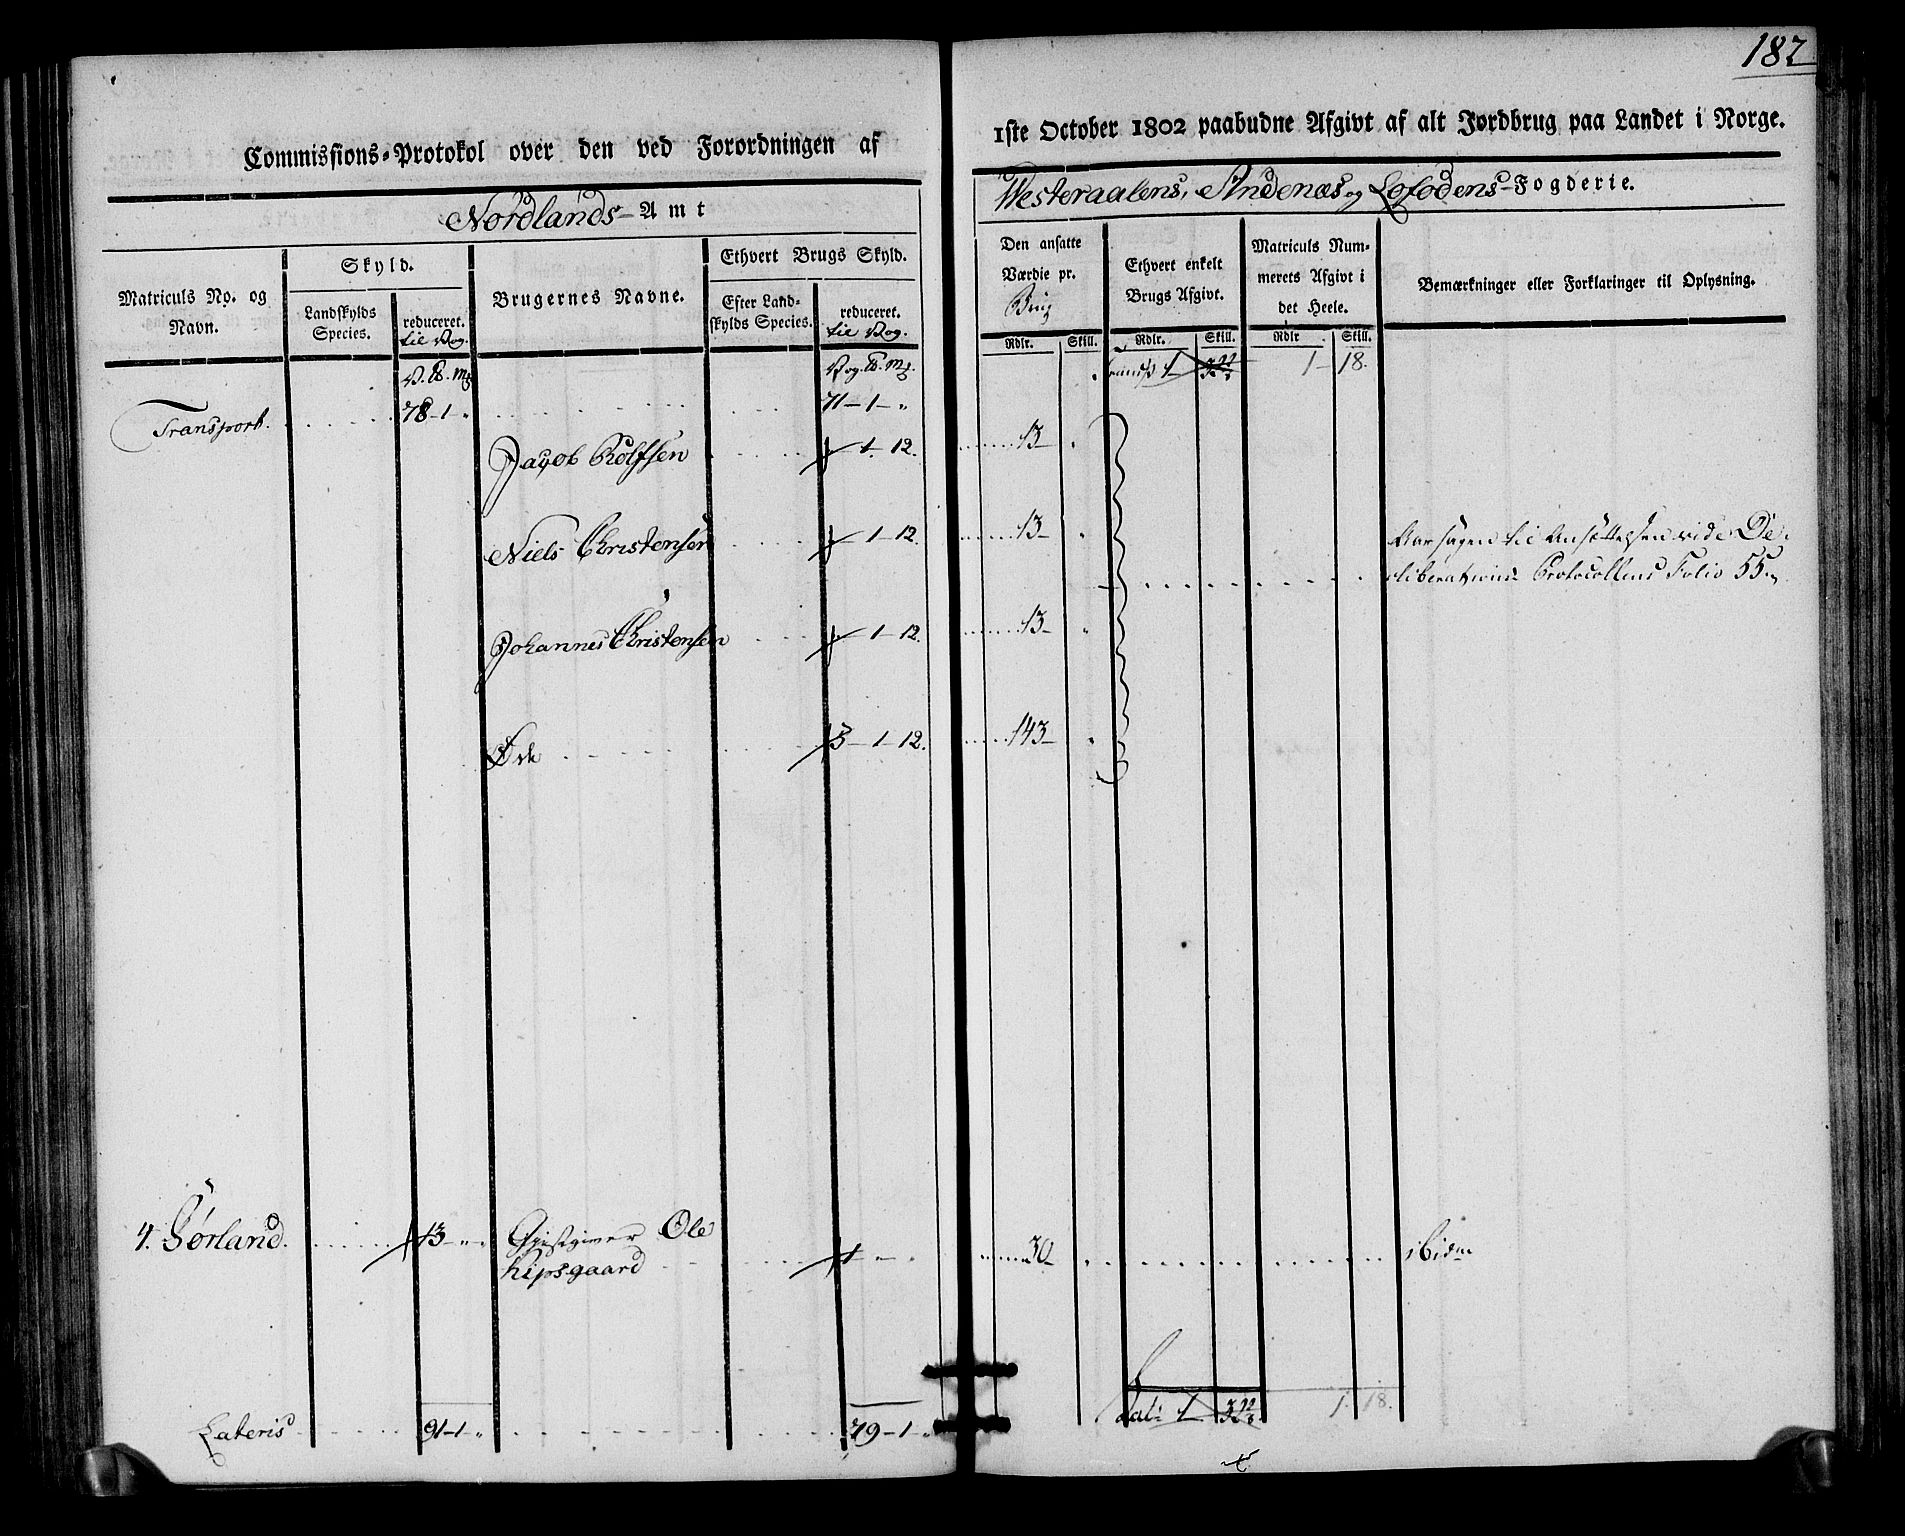 182
Commissions-Protokol over den ved Forordningen af
1ste October 1802 paabudne Afgivt af alt Jordbrug paa Landet i Norge.
Nordlands-Amt
Westeraalens, Andenæs og Lofodens-Fogderie.
Matriculs No. og Navn.
Skyld.
Landskylds Species.
reduceret. til Vog.
Brugernes Navne.
Ethvert Brugs Skyld.
Efter Landskylds Species.
reduceret. til Vog.
Den ansatte Værdie pr. Brug
Ethvert enkelt Brugs Afgivt.
Matriculs Nummerets Afgivt i det Heele.
Bemærkninger eller Forklaringer til Oplysning.
Rdlr. Skill. Rdlr. Skill. Rdlr Skill.
1 - 18.
Transport. 78-1-" 71-1-"
Jacob Rolfsen 1-12. 13-
Niels Christensen 1-12. 13-
Aarsagen til Ansættelsen vide De-
liberations Protocollens Folio 55
Johannes Christensen 1-12. 13-
Øde 3-1-12. 143-
4. Sørland. 13-"-" Giestgiver Ole
Kipsgaard 1 - 30- ibidm
Lateris 91-1-" 79-1-" Lat: 1 1. 18.